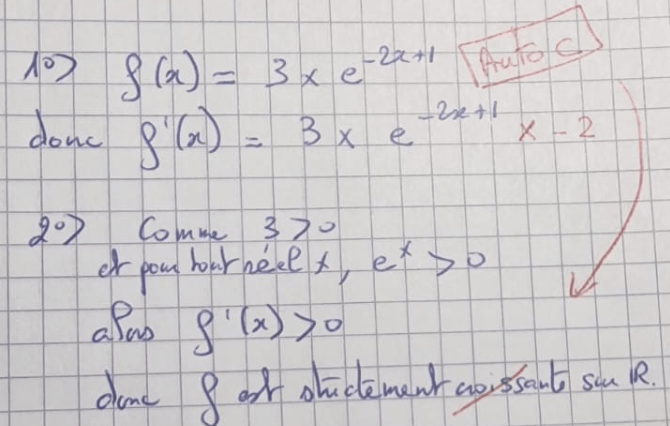 1°) f(x) = 3 × e^{-2x+1} Auto C
donc f'(x) = 3 × e^{-2x+1} × -2
2°) Comme 3 > 0
et pour tout réel x, e^x > 0
alors f'(x) > 0
donc f est strictement croissante sur ℝ.